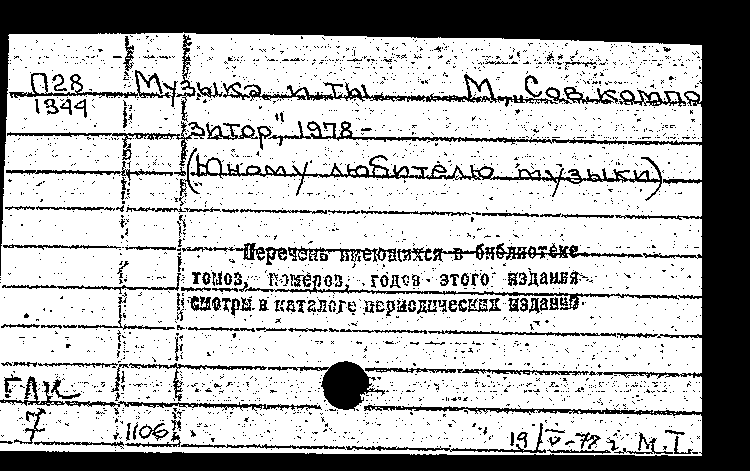 П28 Музыка и ты М., „Сов. компо
1344
зитор", 1978 –
(Юному любителю музыки)
Перечень имеющихся в библиотеке
томов, номеров, годов этого издания
смотри в каталоге периодических изданий
ГЛК
7 1106 19/V-78 г. М.Т.